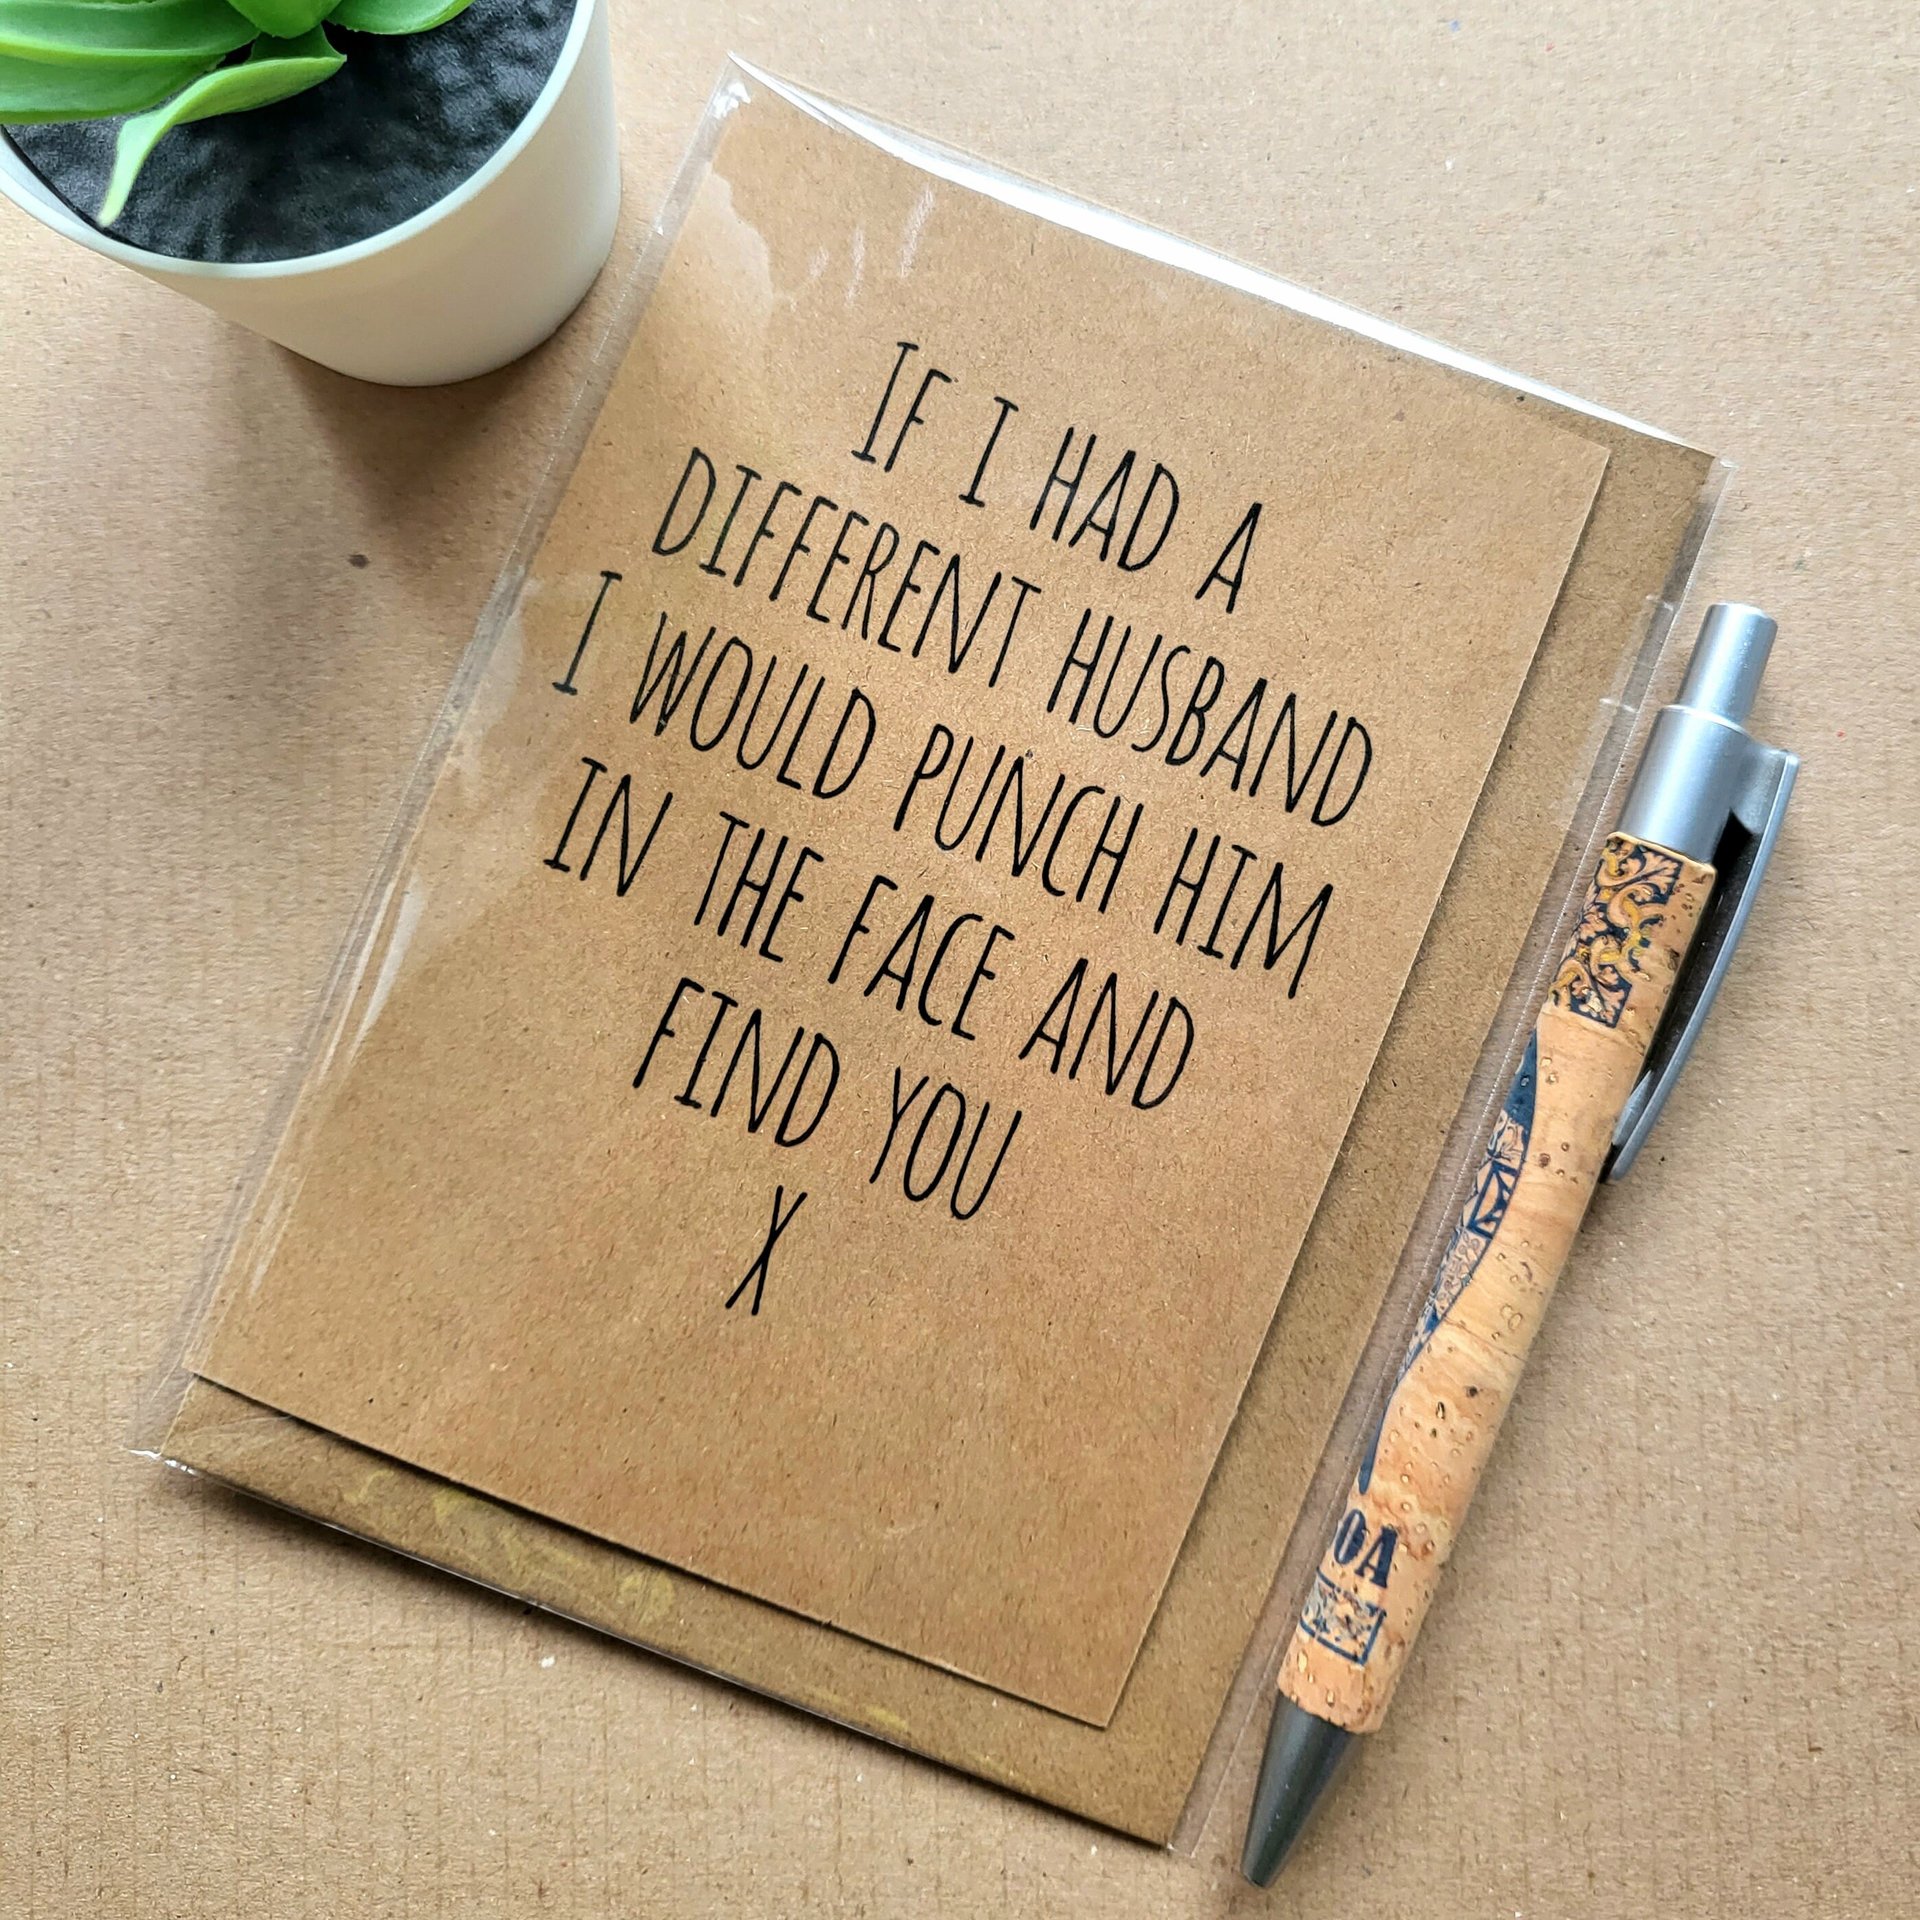 IF I HAD A
DIFFERENT HUSBAND
I WOULD PUNCH HIM
IN THE FACE AND
FIND YOU
X
OA